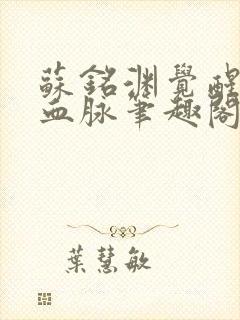 蘇銘淵覺醒
血脈筆趣閣
葉慧敏